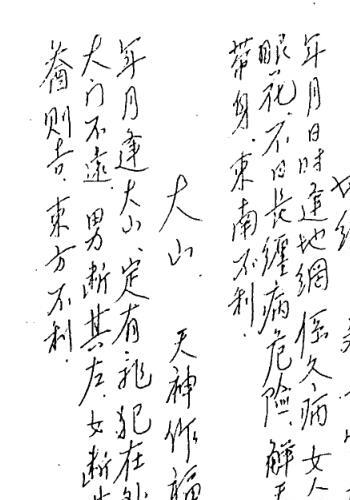 年月日时逢地網係久病女人
眼花.不日長纏病危险.解天
带身.東南不利.
大山. 天神作福
年月逢大山.定有 犯在外
大门不遠.男断其左.女断
则吉.東方不利.